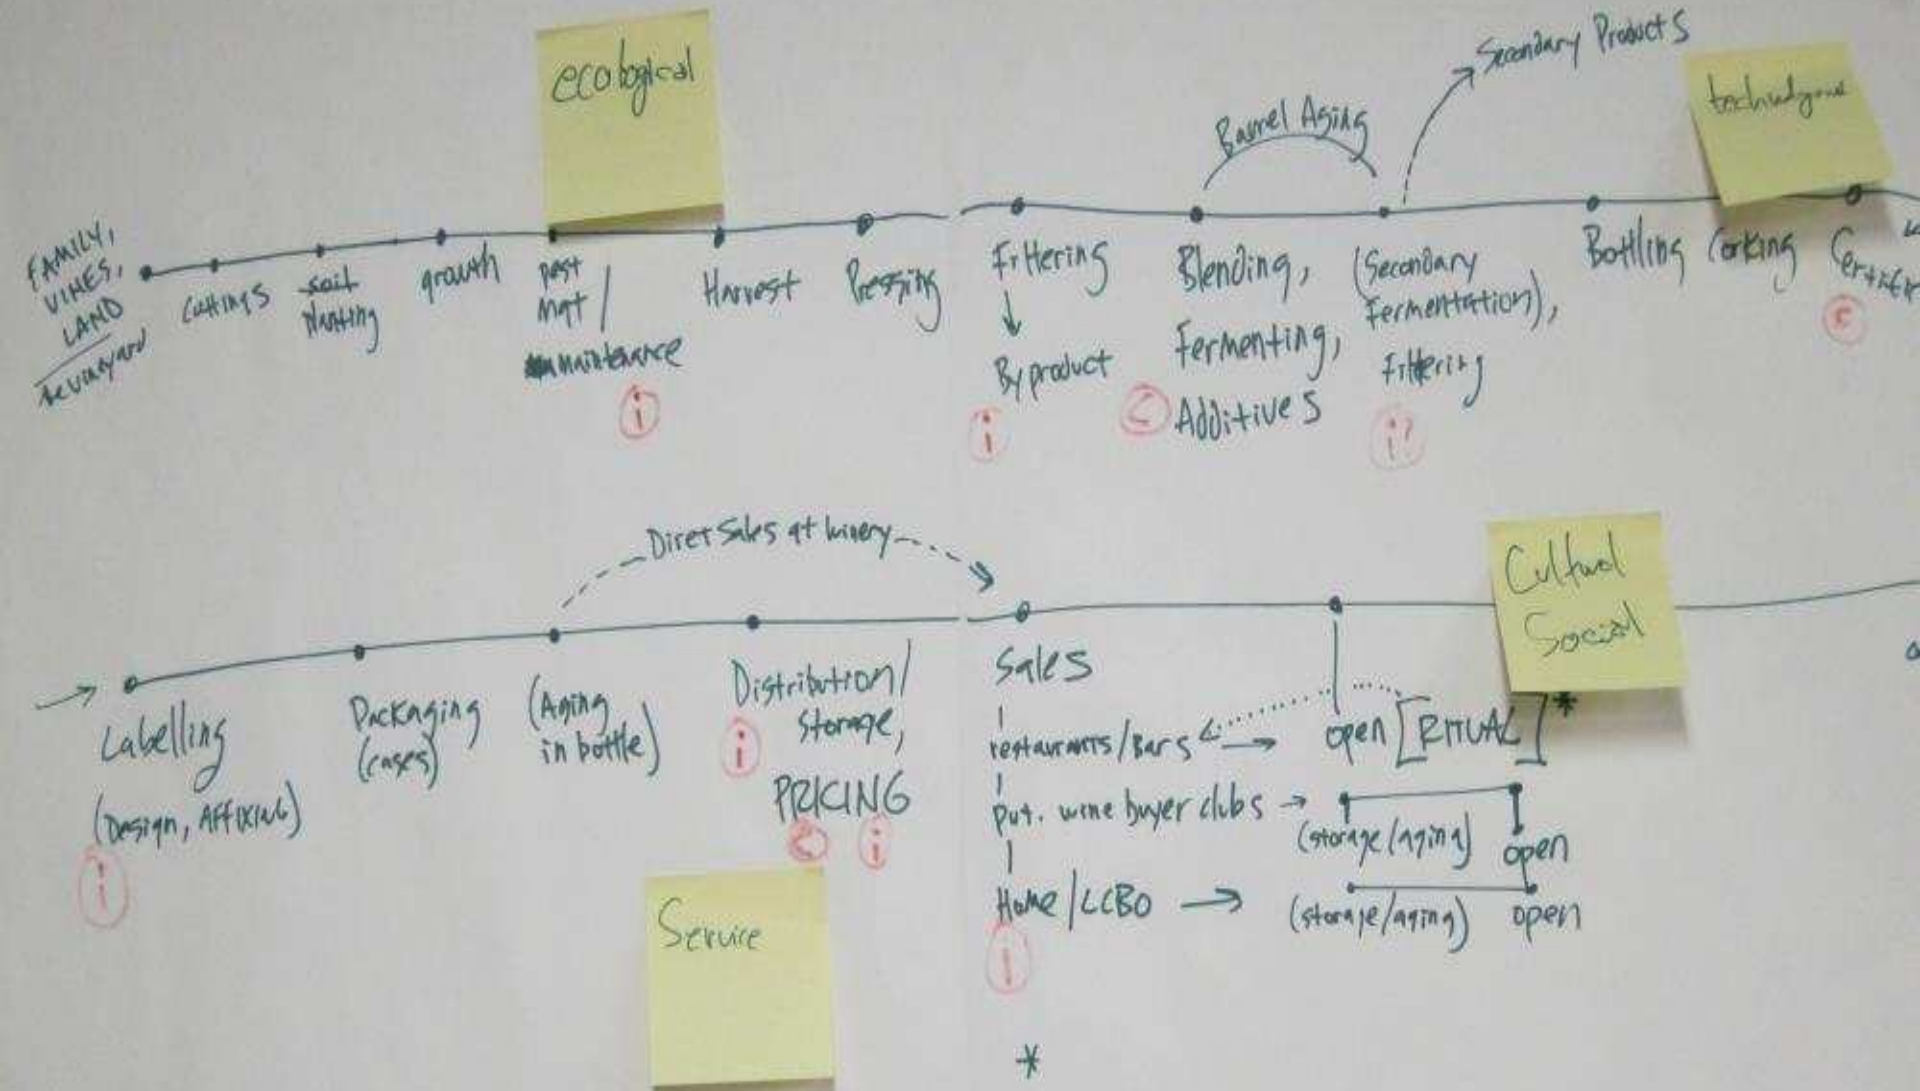 ecological
Secondary Products
Barrel Aging
FAMILY,
VINES,
LAND
Cuttings
soil
planting
growth
pest
mgt /
maintenance
i
Harvest
Pressing
Filtering
Byproduct
i
Blending,
Fermenting,
Additives
C
(Secondary
Fermentation),
Filtering
i?
Bottling
Corking
C
Diret Sales at winery
Cultural
Social
Labelling
(Design, Affixing)
i
Packaging
(cases)
(Aging
in bottle)
Distribution/
Storage,
i
PRICING
C i
Service
Sales
restaurants/Bars
open [RITUAL]*
wine buyer clubs
(storage/aging) open
Home/LCBO
(storage/aging) open
i
*